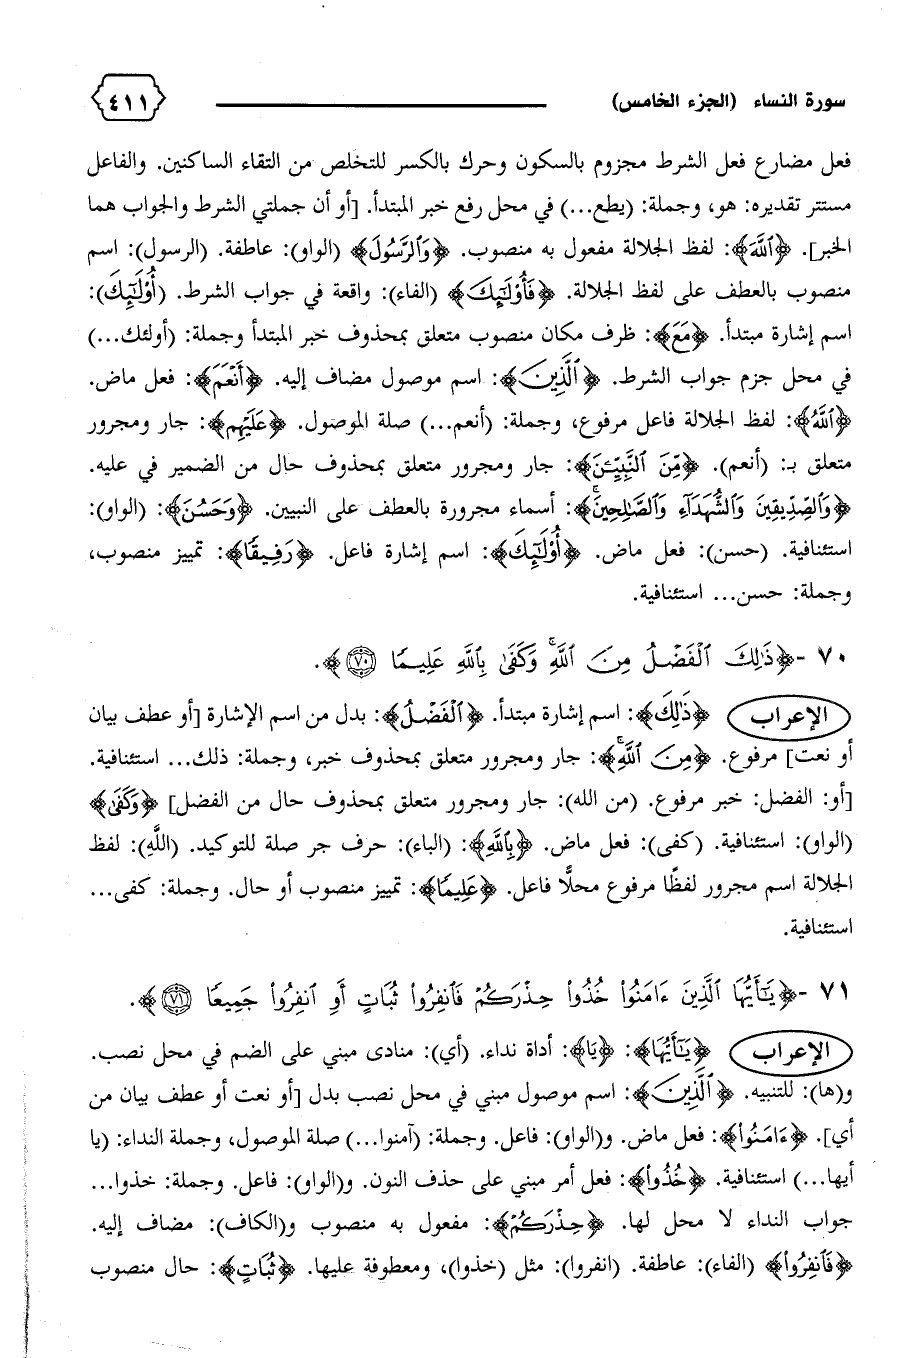 سورة النساء (الجزء الخامس) ٤١١
فعل مضارع فعل الشرط مجزوم بالسكون وحرك بالكسر للتخلص من التقاء الساكنين. والفاعل
مستتر تقديره: هو، وجملة: (يطع...) في محل رفع خبر المبتدأ. [أو أن جملتي الشرط والجواب هما
الخبر]. ﴿ٱللَّهَ﴾: لفظ الجلالة مفعول به منصوب. ﴿وَٱلرَّسُولَ﴾ (الواو): عاطفة. (الرسول): اسم
منصوب بالعطف على لفظ الجلالة. ﴿فَأُوْلَٰٓئِكَ﴾ (الفاء): واقعة في جواب الشرط. (أُوْلَٰٓئِكَ):
اسم إشارة مبتدأ. ﴿مَعَ﴾: ظرف مكان منصوب متعلق بمحذوف خبر المبتدأ وجملة: (أولئك...)
في محل جزم جواب الشرط. ﴿ٱلَّذِينَ﴾: اسم موصول مضاف إليه. ﴿أَنْعَمَ﴾: فعل ماض.
﴿ٱللَّهُ﴾: لفظ الجلالة فاعل مرفوع، وجملة: (أنعم...) صلة الموصول. ﴿عَلَيْهِم﴾: جار ومجرور
متعلق بـ: (أنعم). ﴿مِّنَ ٱلنَّبِيِّـۧنَ﴾: جار ومجرور متعلق بمحذوف حال من الضمير في عليه.
﴿وَٱلصِّدِّيقِينَ وَٱلشُّهَدَآءِ وَٱلصَّٰلِحِينَۚ﴾: أسماء مجرورة بالعطف على النبيين. ﴿وَحَسُنَ﴾: (الواو):
استئنافية. (حسن): فعل ماض. ﴿أُوْلَٰٓئِكَ﴾: اسم إشارة فاعل. ﴿رَفِيقًا﴾: تمييز منصوب،
وجملة: حسن... استئنافية.
٧٠ -﴿ذَٰلِكَ ٱلْفَضْلُ مِنَ ٱللَّهِۚ وَكَفَىٰ بِٱللَّهِ عَلِيمًا ۝٧٠﴾.
الإعراب ﴿ذَٰلِكَ﴾: اسم إشارة مبتدأ. ﴿ٱلْفَضْلُ﴾: بدل من اسم الإشارة [أو عطف بيان
أو نعت] مرفوع. ﴿مِنَ ٱللَّهِۚ﴾: جار ومجرور متعلق بمحذوف خبر، وجملة: ذلك... استئنافية.
[أو: الفضل: خبر مرفوع. (من الله): جار ومجرور متعلق بمحذوف حال من الفضل] ﴿وَكَفَىٰ﴾
(الواو): استئنافية. (كفى): فعل ماض. ﴿بِٱللَّهِ﴾: (الباء): حرف جر صلة للتوكيد. (اللَّهِ): لفظ
الجلالة اسم مجرور لفظًا مرفوع محلًّا فاعل. ﴿عَلِيمًا﴾: تمييز منصوب أو حال. وجملة: كفى...
استئنافية.
٧١ -﴿يَٰٓأَيُّهَا ٱلَّذِينَ ءَامَنُوا۟ خُذُوا۟ حِذْرَكُمْ فَٱنفِرُوا۟ ثُبَاتٍ أَوِ ٱنفِرُوا۟ جَمِيعًا ۝٧١﴾.
الإعراب ﴿يَٰٓأَيُّهَا﴾: ﴿يَا﴾: أداة نداء. (أي): منادى مبني على الضم في محل نصب.
و(ها): للتنبيه. ﴿ٱلَّذِينَ﴾: اسم موصول مبني في محل نصب بدل [أو نعت أو عطف بيان من
أي]. ﴿ءَامَنُوا۟﴾: فعل ماض. و(الواو): فاعل. وجملة: (آمنوا...) صلة الموصول، وجملة النداء: (يا
أيها...) استئنافية. ﴿خُذُوا۟﴾: فعل أمر مبني على حذف النون. و(الواو): فاعل. وجملة: خذوا...
جواب النداء لا محل لها. ﴿حِذْرَكُمْ﴾: مفعول به منصوب و(الكاف): مضاف إليه.
﴿فَٱنفِرُوا۟﴾ (الفاء): عاطفة. (انفروا): مثل (خذوا)، ومعطوفة عليها. ﴿ثُبَاتٍ﴾: حال منصوب